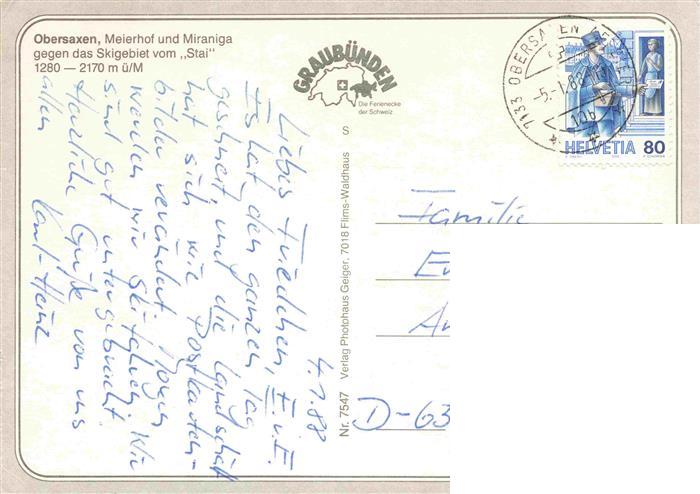 Obersaxen, Meierhof und Miraniga
gegen das Skigebiet vom „Stai"
1280 — 2170 m ü/M
GRAUBÜNDEN
Die Ferienecke
der Schweiz
S
7133 OBERSAXEN MEIERHOF
-5.-1.88
HELVETIA 80
4.1.88
Liebes Friedchen, E. u. E.
Es hat den ganzen Tag
geschneit, und die Landschaft
hat sich wie Postkarten-
bilder verändert. Morgen
werden wir Skifahren. Wir
sind gut untergebracht
Herzliche Grüße von uns
allen
Karl-Heinz
Nr. 7547 Verlag Photohaus Geiger, 7018 Flims-Waldhaus
Familie
D-63